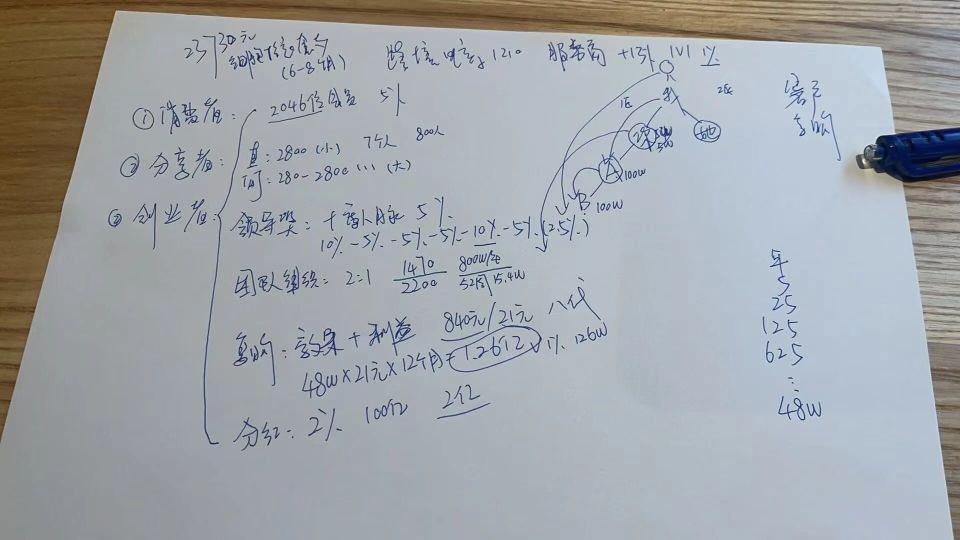 23730元
细胞核心套餐
(6-8个月)
跨境电商1210
服务商 +1区 1V1 1%
① 消费者:
2046位会员 5%
② 分享者:
直: 2800 (小) 7个人 800人
间: 280-2800 (大)
③ 创业者:
领导奖: 十番人脉 5%
10%-5%-5%-5%-10%-5% (2.5%)
团队业绩: 2:1 1470/2200 800W/年 52周 15.4W
复购: 效果+利益 840元/21元 八代
48W×21元×12个月=1.26亿 1% 126W
分红: 2% 100亿 2亿
1区
我
2区
她
A 100W
B 100W
客户
复购
5
25
125
625
⋮
48W